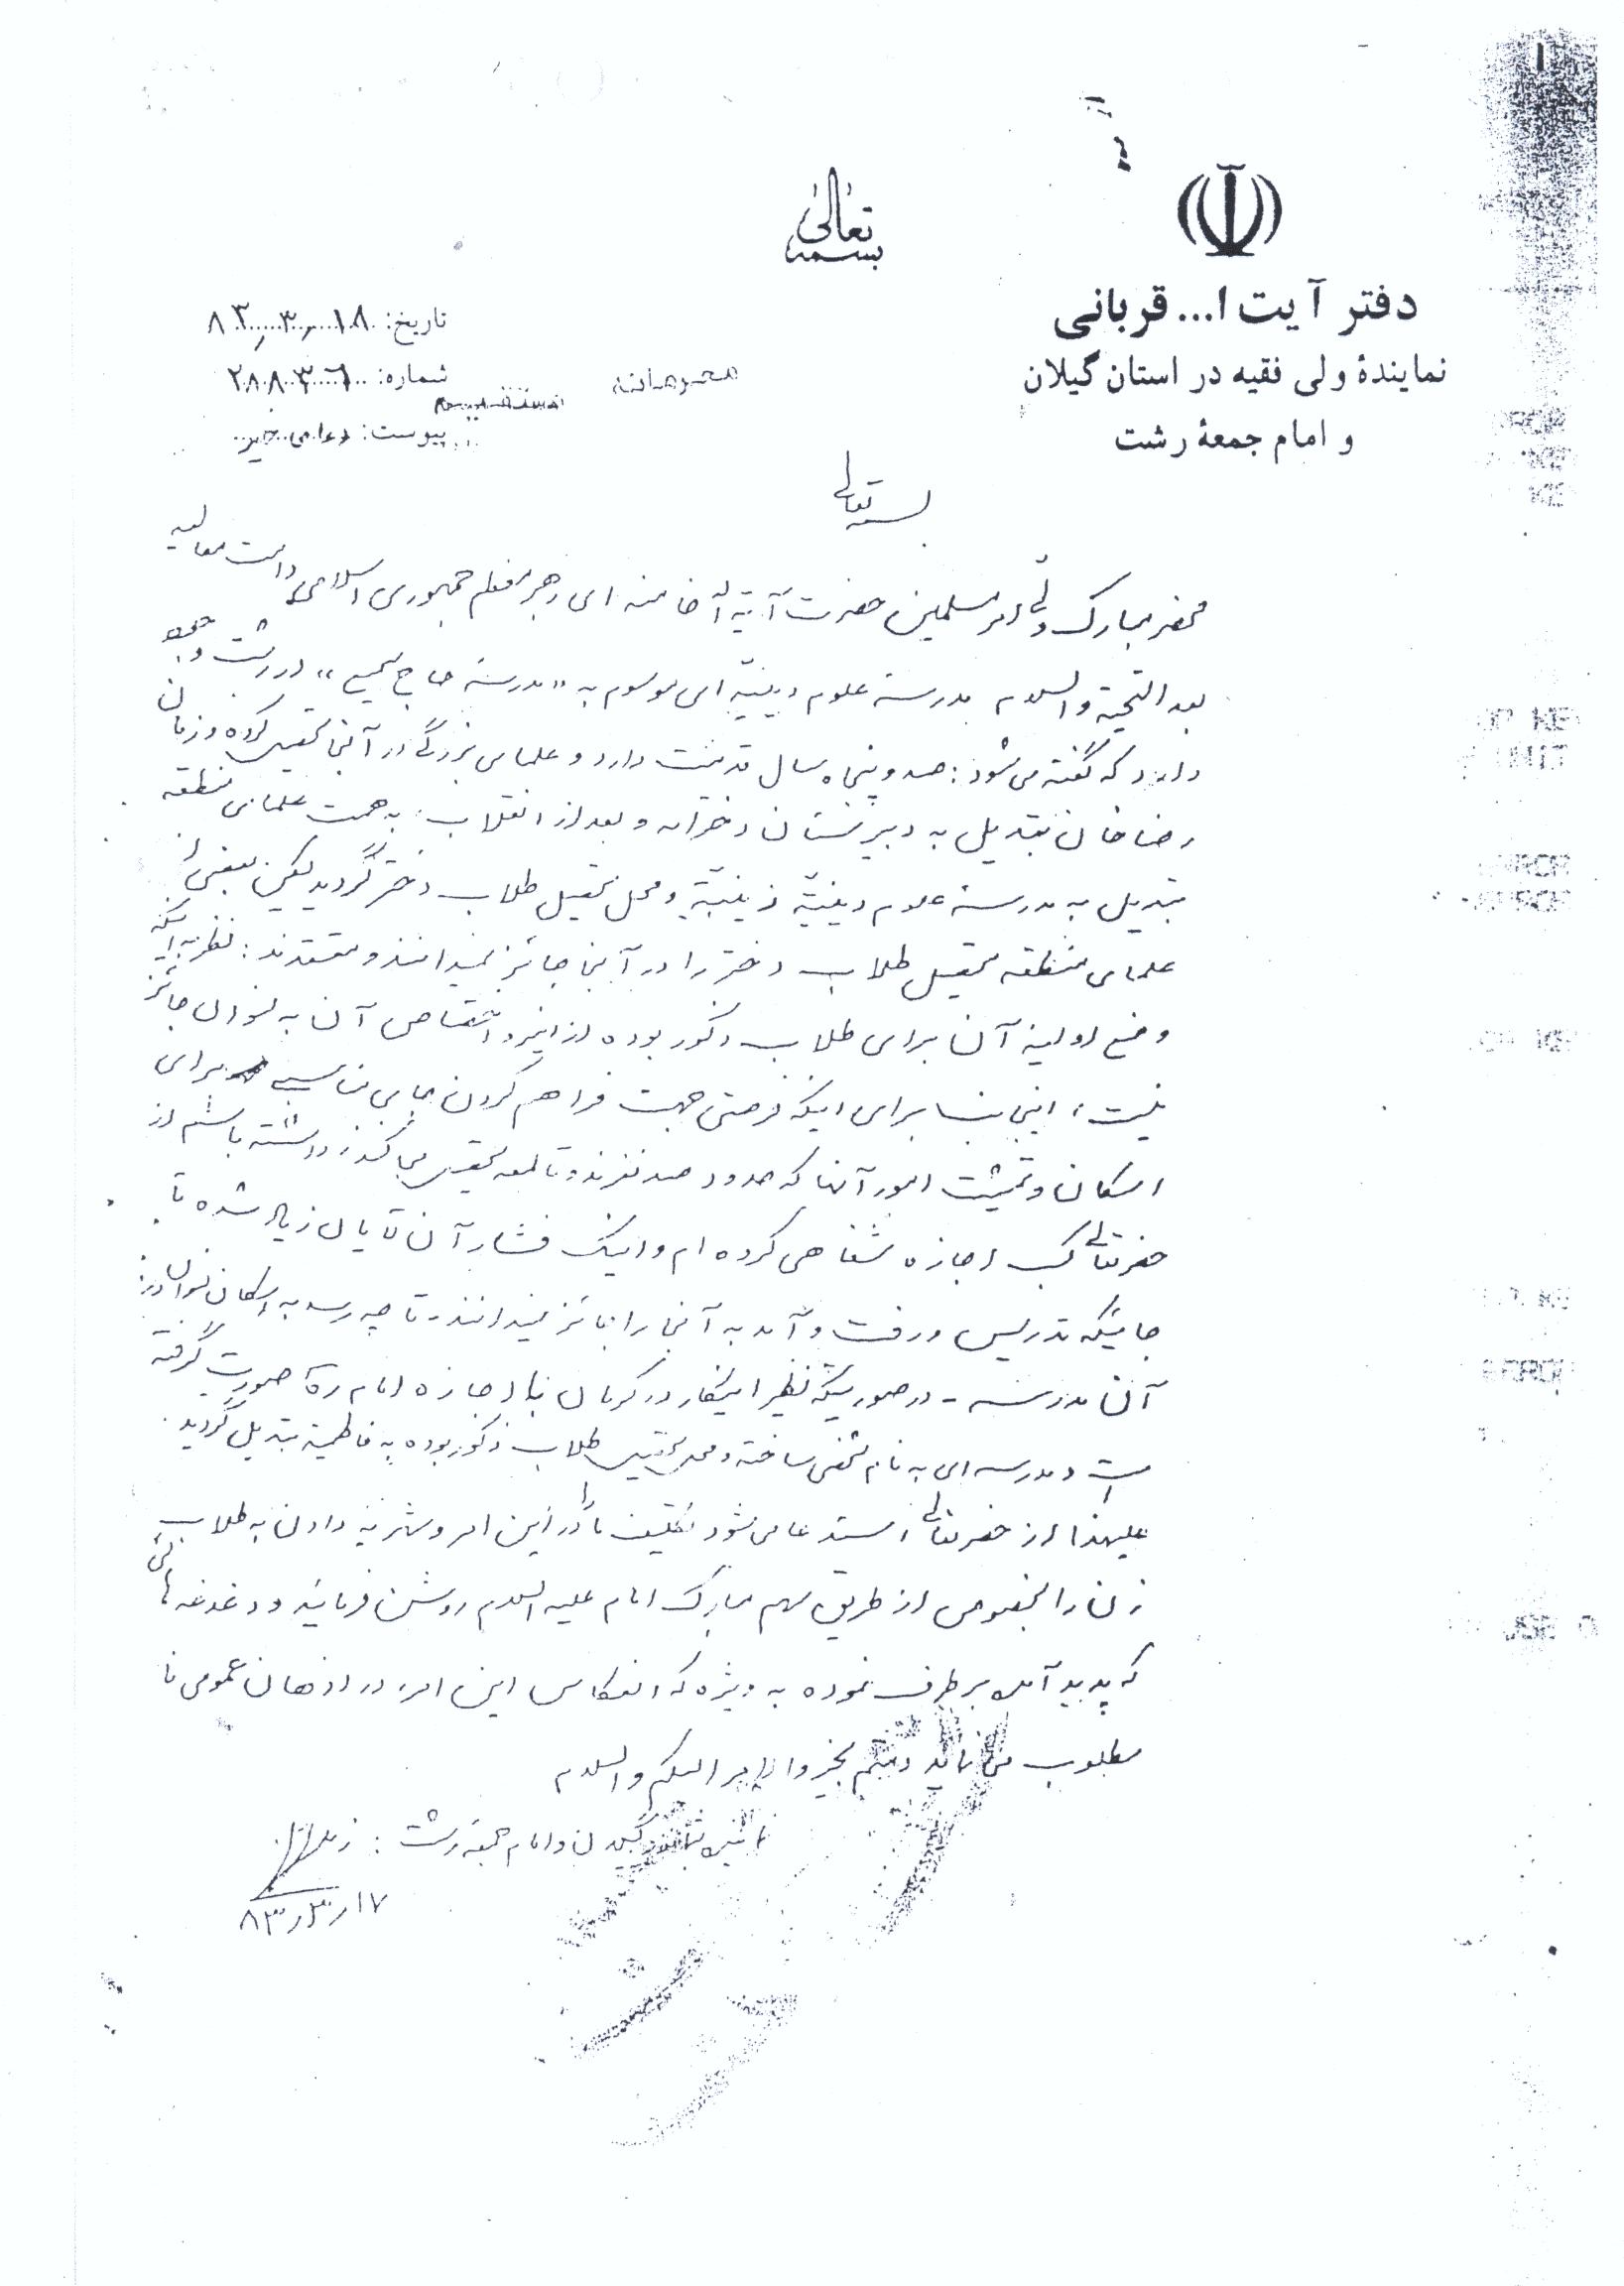 بسمه تعالی
دفتر آیت ا... قربانی
نمایندهٔ ولی فقیه در استان گیلان
و امام جمعهٔ رشت
تاریخ: ۱۸ ر ۳ ر ۸۳
شماره: ۲۸۸۳۰۶
پیوست: دعای خیر
محرمانه مستقیم
بسمه تعالی
محضر مبارک ولی امر مسلمین حضرت آیة الله خامنه ای رهبر معظم جمهوری اسلامی دامت معالیه
بعد التحیة والسلام مدرسهٔ علوم دینیّه ای موسوم به «مدرسهٔ حاج سمیع» در رشت وجود
دارد که گفته می شود: صد و پنجاه سال قدمت دارد و علمای بزرگی در آنجا تحصیل کرده و زمان
رضاخان تبدیل به دبیرستان دخترانه و بعد از انقلاب به همت علمای منطقه
تبدیل به مدرسهٔ علوم دینیّهٔ زینبیّه و محل تحصیل طلاب دختر گردید لیکن بعضی از
علمای منطقه تحصیل طلاب دختر را در آنجا جائز نمیدانند و معتقدند: نظر به اینکه
وضع اولیه آن برای طلاب ذکور بوده از اینرو اختصاص آن به نسوان جائز
نیست، اینجانب برای اینکه فرصتی جهت فراهم کردن جای مناسبی برای
اسکان و تمشیت امور آنها که حدود صد نفرند و تا لمعه تحصیل می کنند داشته باشم از
حضرتعالی کسب اجازه شفاهی کرده ام و اینک فشار آن آقایان زیاد شده تا
جائیکه تدریس و رفت و آمد به آنجا را جائز نمیدانند - تا چه رسد به اسکان نسوان در
آن مدرسه - در صورتیکه نظیر اینکار در کرمان با اجازه امام ره صورت گرفته
است و مدرسه ای به نام شخصی ساخته و محل تحصیل طلاب ذکور بوده به فاطمیه تبدیل گردید.
علیهذا از حضرتعالی استدعا می شود تکلیف ما را در این امر و شهریه دادن به طلاب
زن را بخصوص از طریق سهم مبارک امام علیه السلام روشن فرمائید و دغدغه هائی
که پدید آمده برطرف نموده به ویژه که انعکاس این امر در اذهان عمومی نا
مطلوب می نماید دمتم بخیر والامر الیکم والسلام
نماینده شما در گیلان و امام جمعه رشت:
۱۷ ر ۳ ر ۸۳